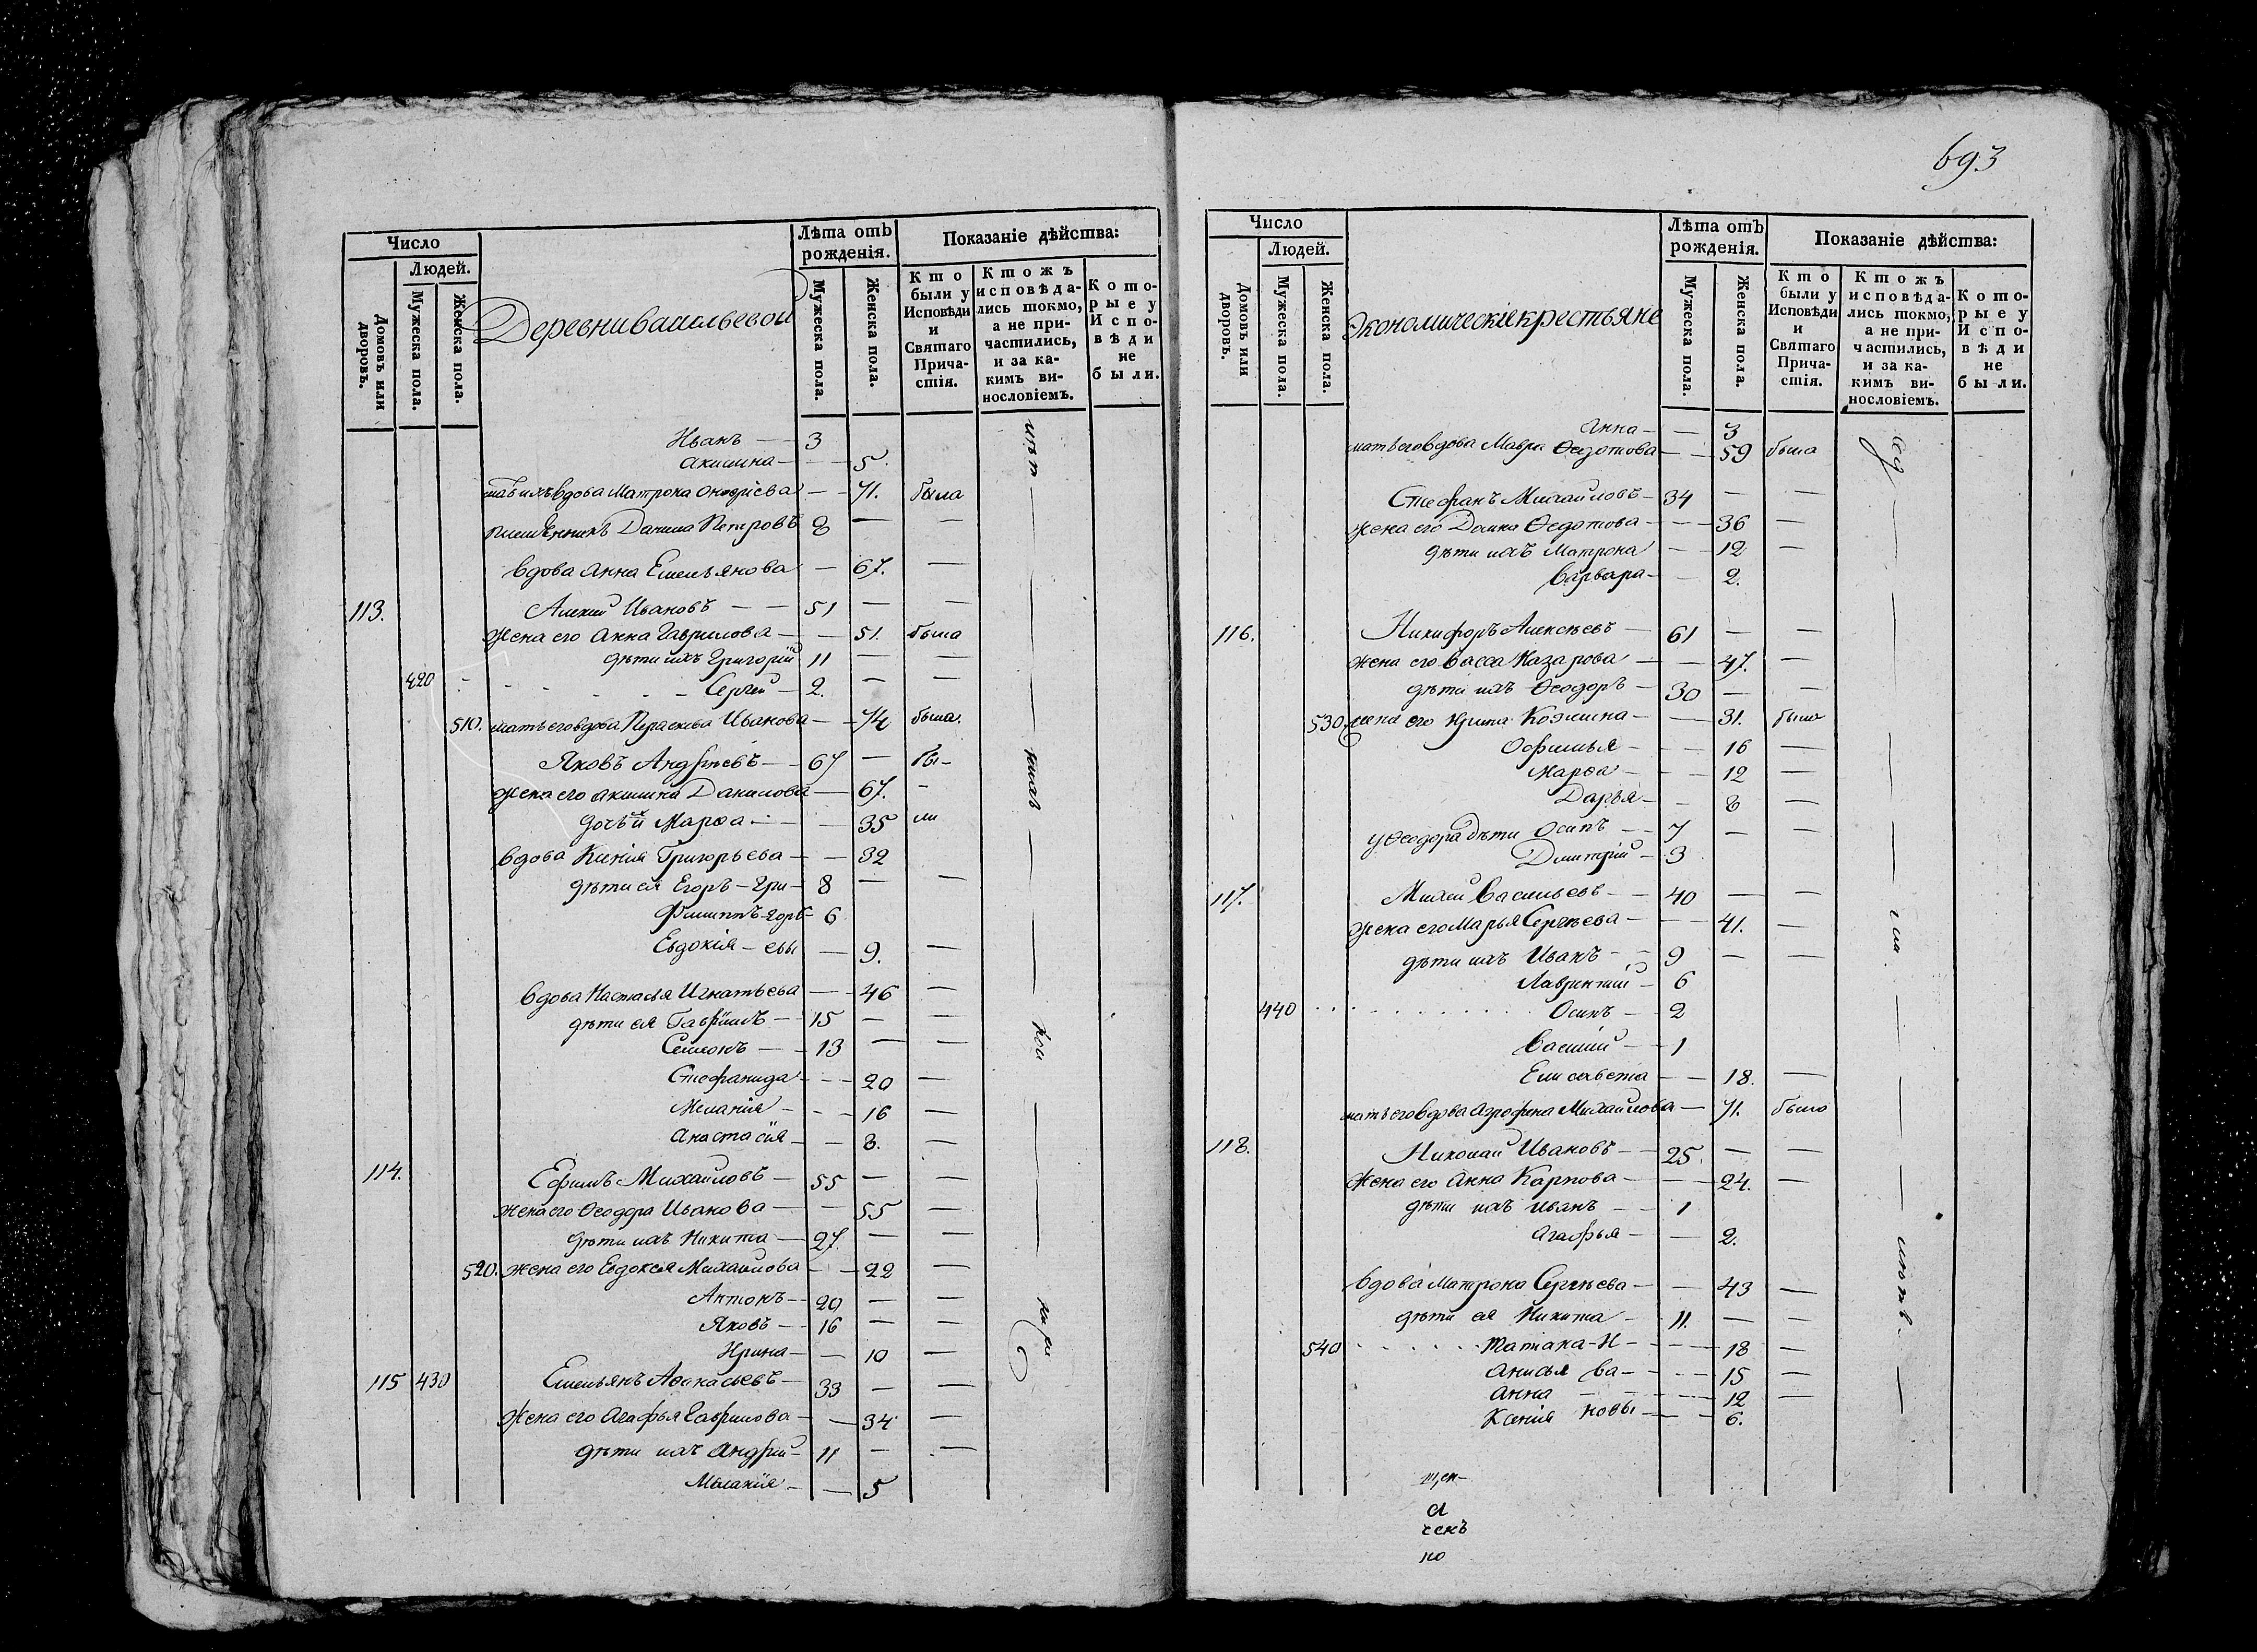 693
Число
Людей.
Домовъ или дворовъ.
Мужеска пола.
Женска пола.
Деревни васильевой
Лѣта отъ рожденія.
Мужеска пола.
Женска пола.
Показаніе дѣйства:
Кто были у Исповѣди и Святаго Причастія.
Ктожъ исповѣдались токмо, а не причастились, и за какимъ винословіемъ.
Которые у Исповѣди не были.
Иванъ — 3
акилина — — 5.
вдова Матрона Онофріева — — 71. была
племѣнникъ Данила Петровъ 8 — —
вдова анна Емельянова — 67. —
113. Алексей Ивановъ — — 51 — —
жена его анна Гаврилова — — 51. была
дѣти ихъ григорій 11 — —
420 Сергей — 2. — —
510. мать его вдова Параскева Иванова — — 74 была.
Яковъ Андрѣевъ — — 67 — бы-
жена его акилина Данилова — 67. -
дочь ый Марѳа — — 35 ли
вдова Ксенія Григорьева — — 32
дѣти ея Егоръ — гри — 8 — —
Филиппъ-горь- 6
Евдокія — евы — 9. —
вдова Настасья Игнатьева — — 46 —
дѣти ея Гаврiилъ — 15 — —
Семионъ — — 13 — —
Стефанида — — 20 —
Меланія — — 16 —
анастасія — — 8. —
114. Ефимъ Михайловъ — 55 — —
жена его Ѳеодора Иванова — — 55 —
дѣти ихъ Никита — 27. — —
520. жена его Евдокея Михайлова — — 22 —
Антонъ — 20 — —
Яковъ — — 16 — —
Ирина — — 10 —
115 430 Емельянъ Аѳанасьевъ — 33 — —
жена его агафья гаврилова — — 34 —
дѣти ихъ андрей — 11 — —
Меланія — — 5
Число
Людей.
Домовъ или дворовъ.
Мужеска пола.
Женска пола.
Экономическіе крестьяне
Лѣта отъ рожденія.
Мужеска пола.
Женска пола.
Показаніе дѣйства:
Кто были у Исповѣди и Святаго Причастія.
Ктожъ исповѣдались токмо, а не причастились, и за какимъ винословіемъ.
Которые у Исповѣди не были.
анна — — 3
мать его вдова Мавра Ѳедотова — — 59 была
Стефанъ Михайловъ — 34 — —
жена его Домна Ѳедотова — — 36 —
дѣти ихъ Матрона — 12 —
варвара — — 2.
116. Никифоръ Алексѣевъ — 61 — —
жена его васса Назарова — — 47. —
дѣти ихъ Ѳеодоръ — 30 — —
530. жена его Ирина Козмина — — 31. была
Ѳофимья — — 16 —
Марѳа — — 12 —
Дарья — — 8 —
у Ѳеодора дѣти Осипъ — — 7 — —
Дмитрій — 3
117. Михей васильевъ — — 40 — —
жена его Марья Сергѣева — — 41. —
дѣти ихъ Иванъ — — 9 — —
Лаврентій — 6
440 Осипъ — 2
василій — — 1
Елисавета — — 18. —
мать его вдова агрофена Михайлова — 71. была
118. Николай Ивановъ — — 25. — —
жена его анна Карпова — — 24. —
дѣти ихъ иванъ — — 1
агафья — — 2.
вдова Матрона Сергѣева — — 43 —
дѣти ея Никита — 11. — —
540 Татiана — И — — — 18 —
анисья ва — — — 15 —
анна — — — — 12 —
Ксенія новы — — 6.